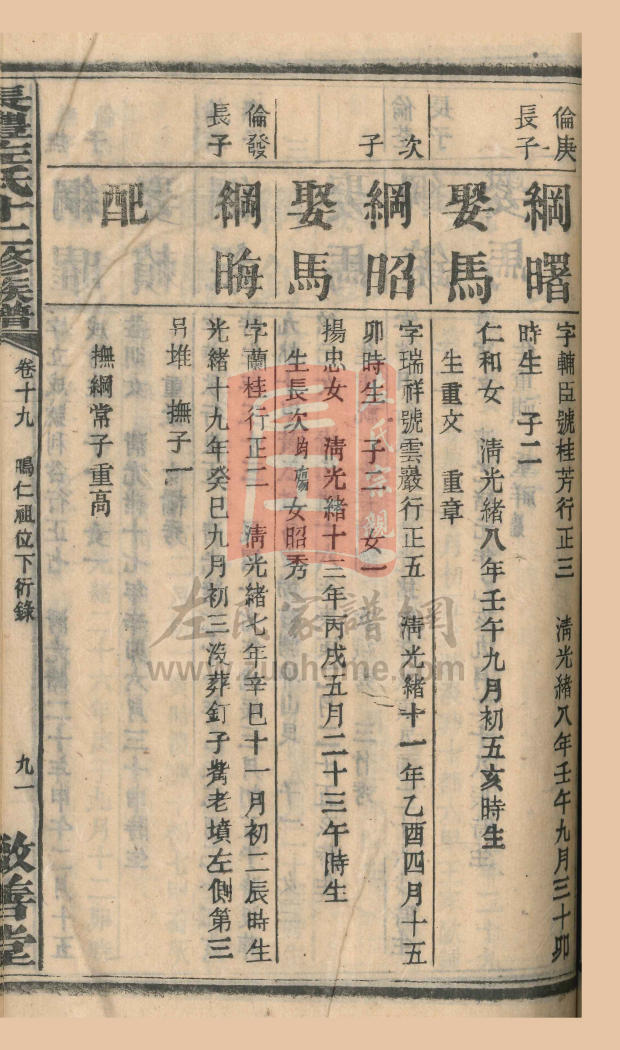 倫庚長子
綱曙
字輔臣號桂芳行正三 淸光緖八年壬午九月三十卯
時生 子二
娶馬
仁和女 淸光緖八年壬午九月初五亥時生
生重文 重章
次子
綱昭
字瑞祥號雲巖行正五 淸光緖十一年乙酉四月十五
卯時生 子二 女一
娶馬
揚忠女 淸光緖十二年丙戌五月二十三午時生
生長次 女昭秀
倫發長子
綱晦
字蘭桂行正二 淸光緖七年辛巳十一月初二辰時生
光緖十九年癸巳九月初三歿葬釘子灣老墳左側第三
另堆 撫子一
配
撫綱常子重高
長澧左氏十二修族譜
卷十九 鳴仁祖位下衍錄
九一
敦善堂
左氏家譜網
www.zuohome.com